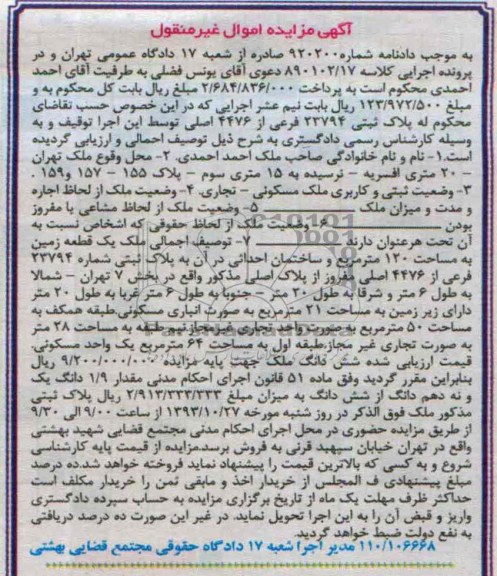 آگهی مزایده اموال غیرمنقول
به موجب دادنامه شماره۹۲۰۲۰۰ صادره از شعبه ۱۷ دادگاه عمومی تهران و در
پرونده اجرایی کلاسه ۸۹۰۱۰۲/۱۷ دعوی آقای یونس فضلی به طرفیت آقای احمد
احمدی محکوم است به پرداخت ۲/۶۸۴/۸۳۶/۰۰۰ مبلغ ریال بابت کل محکوم به و
مبلغ ۱۲۳/۹۷۲/۵۰۰ ریال بابت نیم عشر اجرایی که در این خصوص حسب تقاضای
محکوم له پلاک ثبتی ۲۳۷۹۴ فرعی از ۴۴۷۶ اصلی توسط این اجرا توقیف و به
وسیله کارشناس رسمی دادگستری به شرح ذیل توصیف اجمالی و ارزیابی گردیده
است.۱- نام و نام خانوادگی صاحب ملک احمد احمدی. ۲- محل وقوع ملک تهران
– ۲۰ متری افسریه – نرسیده به ۱۵ متری سوم – پلاک ۱۵۵ – ۱۵۷ و۱۵۹.
۳- وضعیت ثبتی و کاربری ملک مسکونی – تجاری. ۴- وضعیت ملک از لحاظ اجاره
و مدت و میزان ملک ۵- وضعیت ملک از لحاظ مشاعی یا مفروز
بودن وضعیت ملک از لحاظ حقوقی که اشخاص نسبت به
آن تحت هرعنوان دارند ۷- توصیف اجمالی ملک یک قطعه زمین
به مساحت ۱۲۰ مترمربع و ساختمان احداثی در آن به پلاک ثبتی شماره ۲۳۷۹۴
فرعی از ۴۴۷۶ اصلی مفروز از پلاک اصلی مذکور واقع در بخش ۷ تهران – شمالا
به طول ۶ متر و شرقا به طول ۲۰ متر – جنوبا به طول ۶ متر غربا به طول ۲۰ متر
دارای زیر زمین به مساحت ۲۱ مترمربع به صورت انباری مسکونی.طبقه همکف به
مساحت ۵۰ مترمربع به صورت واحد تجاری غیر مجاز.نیم طبقه به مساحت ۲۸ متر
به صورت تجاری غیر مجاز.طبقه اول به مساحت ۶۴ مترمربع یک واحد مسکونی
قیمت ارزیابی شده شش دانگ ملک جهت پایه مزایده ۹/۲۰۰/۰۰۰/۰۰۰ ریال
بنابراین مقرر گردید وفق ماده ۵۱ قانون اجرای احکام مدنی مقدار ۱/۹ دانگ یک
و نه دهم دانگ از شش دانگ به میزان مبلغ ۲/۹۱۳/۳۳۳/۳۳۳ ریال پلاک ثبتی
مذکور ملک فوق الذکر در روز شنبه مورخه ۱۳۹۳/۱۰/۲۷ از ساعت ۹/۰۰ الی ۹/۳۰
از طریق مزایده حضوری در محل اجرای احکام مدنی مجتمع قضایی شهید بهشتی
واقع در تهران خیابان سپهبد قرنی به فروش برسد.مزایده از قیمت پایه کارشناسی
شروع و به کسی که بالاترین قیمت را پیشنهاد نماید فروخته خواهد شد.ده درصد
مبلغ پیشنهادی ف المجلس از خریدار اخذ و مابقی ثمن را خریدار مکلف است
حداکثر ظرف مهلت یک ماه از تاریخ برگزاری مزایده به حساب سپرده دادگستری
واریز و قبض آن را به این اجرا تحویل نماید. در غیر این صورت ده درصد دریافتی
به نفع دولت ضبط خواهد گردید.
۱۱۰/۱۰۶۶۶۸ مدیر اجرا شعبه ۱۷ دادگاه حقوقی مجتمع قضایی بهشتی